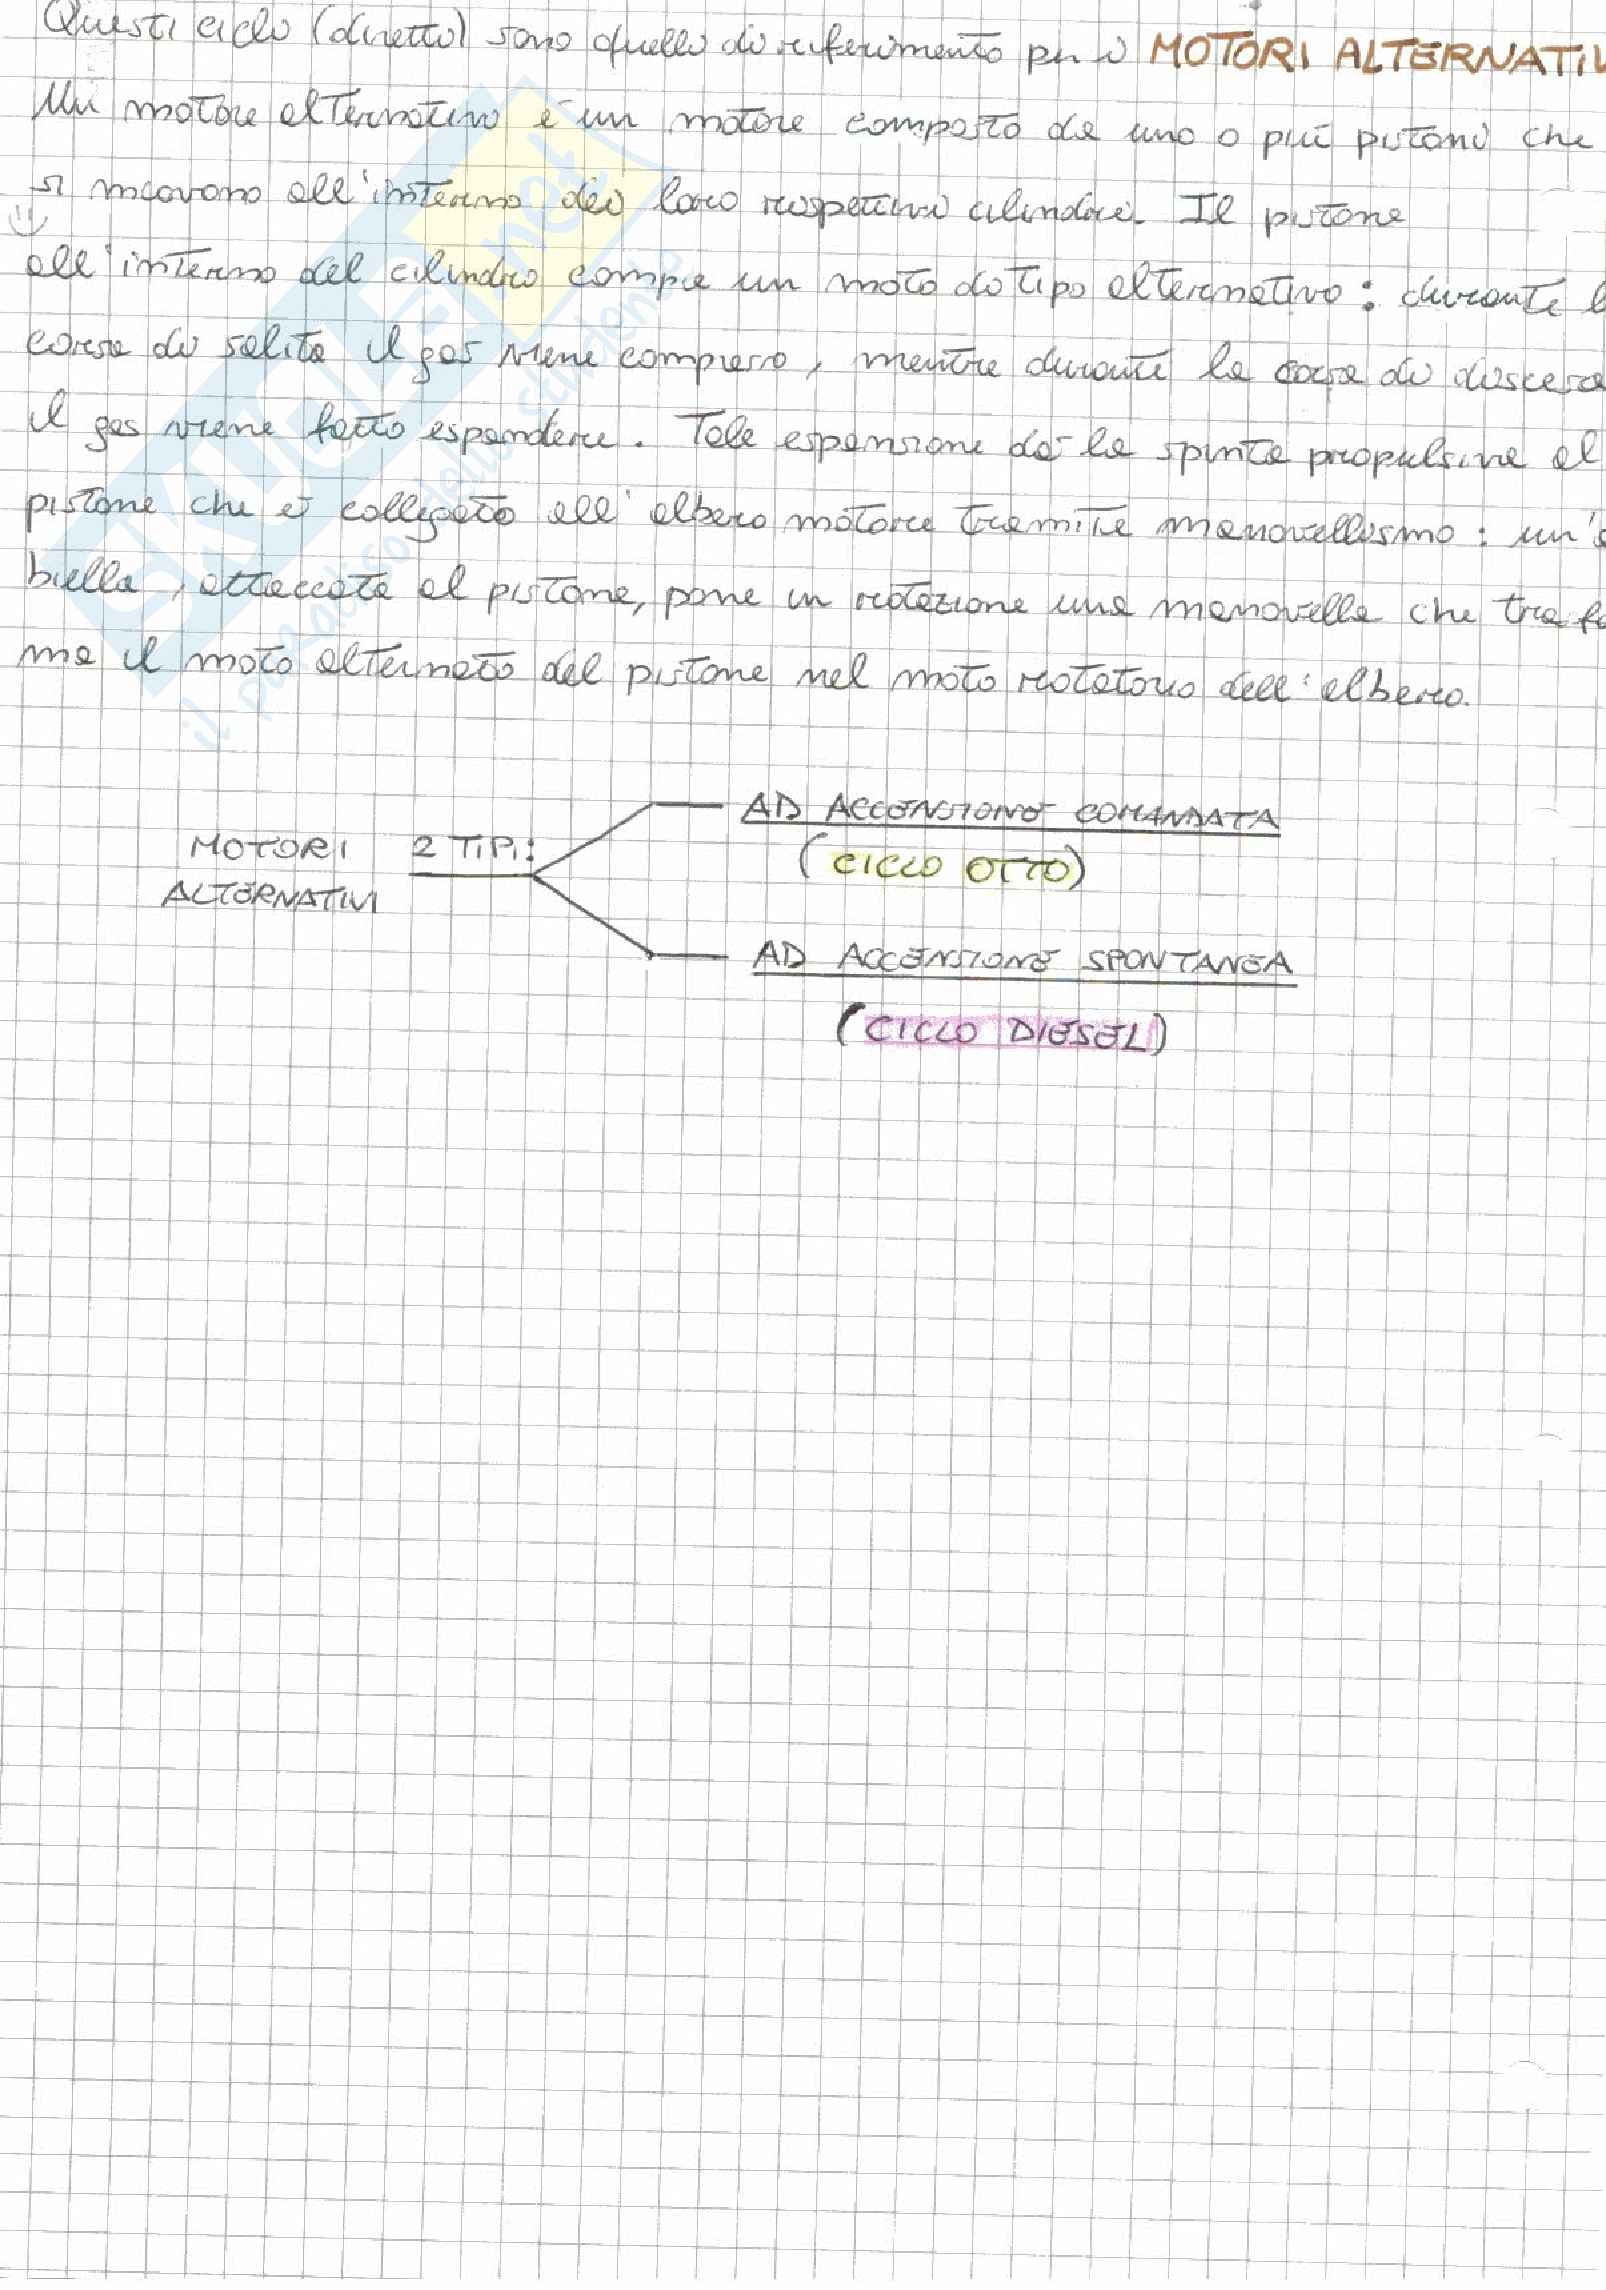 Questi cicli (diretti) sono quelli di riferimento per i MOTORI ALTERNATIV
Un motore alternativo è un motore composto da uno o più pistoni che
si muovono all'interno dei loro rispettivi cilindri. Il pistone
all'interno del cilindro compie un moto di tipo alternativo: durante l
corsa di salita il gas viene compresso, mentre durante la corsa di discesa
il gas viene fatto espandere. Tale espansione dà la spinta propulsiva al
pistone che è collegato all'albero motore tramite manovellismo: un'a
biella, attaccata al pistone, pone in rotazione una manovella che trafo
ma il moto alternato del pistone nel moto rotatorio dell'albero.
MOTORI 2 TIPI: AD ACCENSIONE COMANDATA
ALTERNATIVI (CICLO OTTO)
AD ACCENSIONE SPONTANEA
(CICLO DIESEL)
SKUOLA.net
il paradiso dello studente